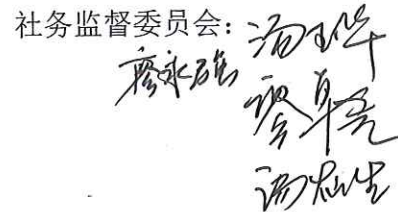 社务监督委员会：汤玉华
廖永强
汤灿生